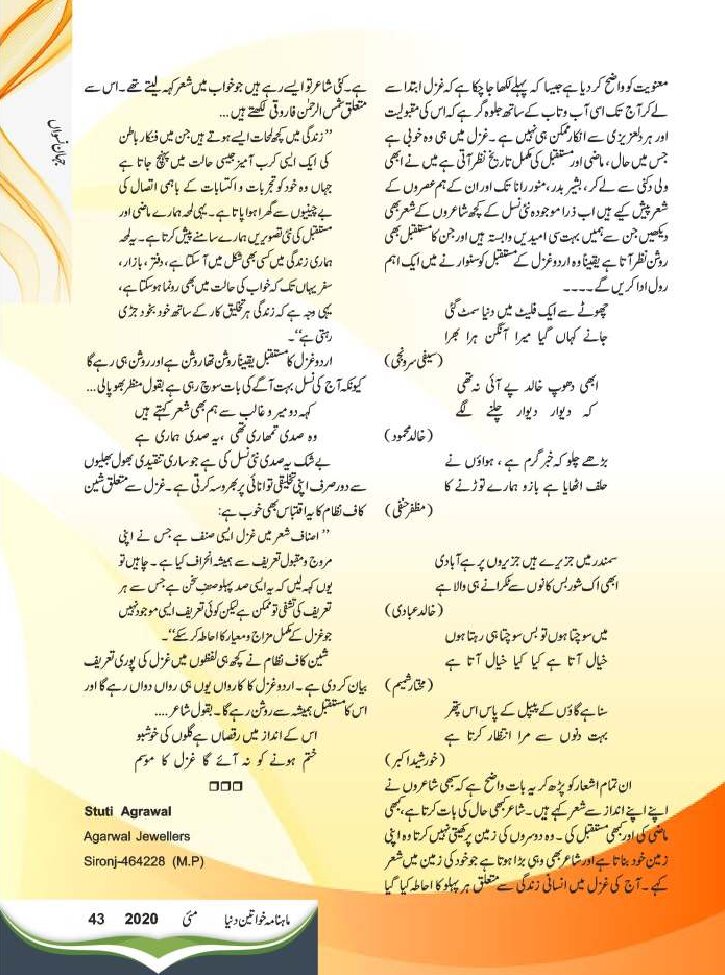 جہانِ نسواں
معنویت کو واضح کر دیا ہے جیسا کہ پہلے لکھا جا چکا ہے کہ غزل ابتدا سے
لے کر آج تک اسی آب و تاب کے ساتھ جلوہ گر ہے کہ اس کی مقبولیت
اور ہر دلعزیزی سے انکار ممکن ہی نہیں ہے ۔ غزل میں ہی وہ خوبی ہے
جس میں حال ، ماضی اور مستقبل کی مکمل تاریخ نظر آتی ہے میں نے ابھی
ولی دکنی سے لے کر ، بشیر بدر، منور رانا تک اور ان کے ہم عصروں کے
شعر پیش کیے ہیں اب ذرا موجودہ نئی نسل کے کچھ شاعروں کے شعر بھی
دیکھیں جن سے ہمیں بہت سی امیدیں وابستہ ہیں اور جن کا مستقبل بھی
روشن نظر آتا ہے یقیناً وہ اردو غزل کے مستقبل کو سنوارنے میں ایک اہم
رول ادا کریں گے ۔۔۔۔
چھوٹے سے ایک فلیٹ میں دنیا سمٹ گئی
جانے کہاں گیا میرا آنگن ہرا بھرا
(سیفی سرونجی)
ابھی دھوپ خالد پے آئی نہ تھی
کہ دیوار دیوار چلنے لگے
(خالد محمود)
بڑھے چلو کہ خبر گرم ہے ، ہواؤں نے
حلف اٹھایا ہے بازو ہمارے توڑنے کا
(مظفر حنفی)
سمندر میں جزیرے ہیں جزیروں پر ہے آبادی
ابھی اک شور بس کانوں سے ٹکرانے ہی والا ہے
(خالد عبادی)
میں سوچتا ہوں تو بس سوچتا ہی رہتا ہوں
خیال آتا ہے کیا کیا خیال آتا ہے
(مختار شمیم)
سنا ہے گاؤں کے پیپل کے پاس اس پتھر
بہت دنوں سے مرا انتظار کرتا ہے
(خورشید اکبر)
ان تمام اشعار کو پڑھ کر یہ بات واضح ہے کہ سبھی شاعروں نے
اپنے اپنے انداز سے شعر کہے ہیں ۔ شاعر بھی حال کی بات کرتا ہے، کبھی
ماضی کی اور کبھی مستقبل کی ۔ وہ دوسروں کی زمین پر کھیتی نہیں کرتا وہ اپنی
زمین خود بناتا ہے اور شاعر بھی وہی بڑا ہوتا ہے جو خود کی زمین میں شعر
کہے ۔ آج کی غزل میں انسانی زندگی سے متعلق ہر پہلو کا احاطہ کیا گیا
ہے ۔ کئی شاعر تو ایسے رہے ہیں جو خواب میں شعر کہہ لیتے تھے ۔ اس سے
متعلق شمس الرحمٰن فاروقی لکھتے ہیں ...
’’زندگی میں کچھ لمحات ایسے ہوتے ہیں جن میں فنکار باطن
کی ایک ایسی کرب آمیز جیسی حالت میں پہنچ جاتا ہے
جہاں وہ خود کو تجربات و اکتسابات کے باہمی اتصال کی
بے چینیوں سے گھرا ہوا پاتا ہے ۔ یہی لمحہ ہمارے ماضی اور
مستقبل کی نئی تصویریں ہمارے سامنے پیش کرتا ہے ۔ یہ لمحہ
ہماری زندگی میں کسی بھی شکل میں آ سکتا ہے، دفتر ، بازار،
سفر یہاں تک کہ خواب کی حالت میں بھی رونما ہو سکتا ہے،
یہی وجہ ہے کہ زندگی ہر تخلیق کار کے ساتھ خود بخود جڑی
رہتی ہے‘‘۔
اردو غزل کا مستقبل یقیناً روشن تھا روشن ہے اور روشن ہی رہے گا
کیونکہ آج کی نسل بہت آگے کی بات سوچ رہی ہے بقول منظر بھوپالی...
کہہ دو میر و غالب سے ہم بھی شعر کہتے ہیں
وہ صدی تمھاری تھی ،یہ صدی ہماری ہے
بے شک یہ صدی نئی نسل کی ہے جو ساری تنقیدی بھول بھلیوں
سے دور صرف اپنی تخلیقی توانائی پر بھروسہ کرتی ہے ۔ غزل سے متعلق شین
کاف نظام کا یہ اقتباس بھی خوب ہے:
’’ اصناف شعر میں غزل ایسی صنف ہے جس نے اپنی
مروج و مقبول تعریف سے ہمیشہ انحراف کیا ہے ۔ چاہیں تو
یوں کہہ لیں کہ یہ ایسی صد پہلو صنفِ سخن ہے جس سے ہر
تعریف کی تشفی تو ممکن ہے لیکن کوئی تعریف ایسی موجود نہیں
جو غزل کے مکمل مزاج و معیار کا احاطہ کر سکے‘‘۔
شین کاف نظام نے کچھ ہی لفظوں میں غزل کی پوری تعریف
بیان کر دی ہے ۔ اردو غزل کا کارواں یوں ہی رواں دواں رہے گا اور
اس کا مستقبل ہمیشہ سے روشن رہے گا ۔ بقول شاعر ....
اس کے انداز میں رقصاں ہے گلوں کی خوشبو
ختم ہونے کو نہ آئے گا غزل کا موسم
□□□
Stuti Agrawal
Agarwal Jewellers
Sironj-464228 (M.P)
ماہنامہ خواتین دنیا مئی 2020 43